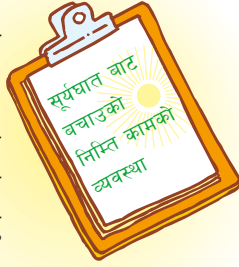 सूर्यघात बाट
बचाउको
निम्ति कामको
व्यवस्था